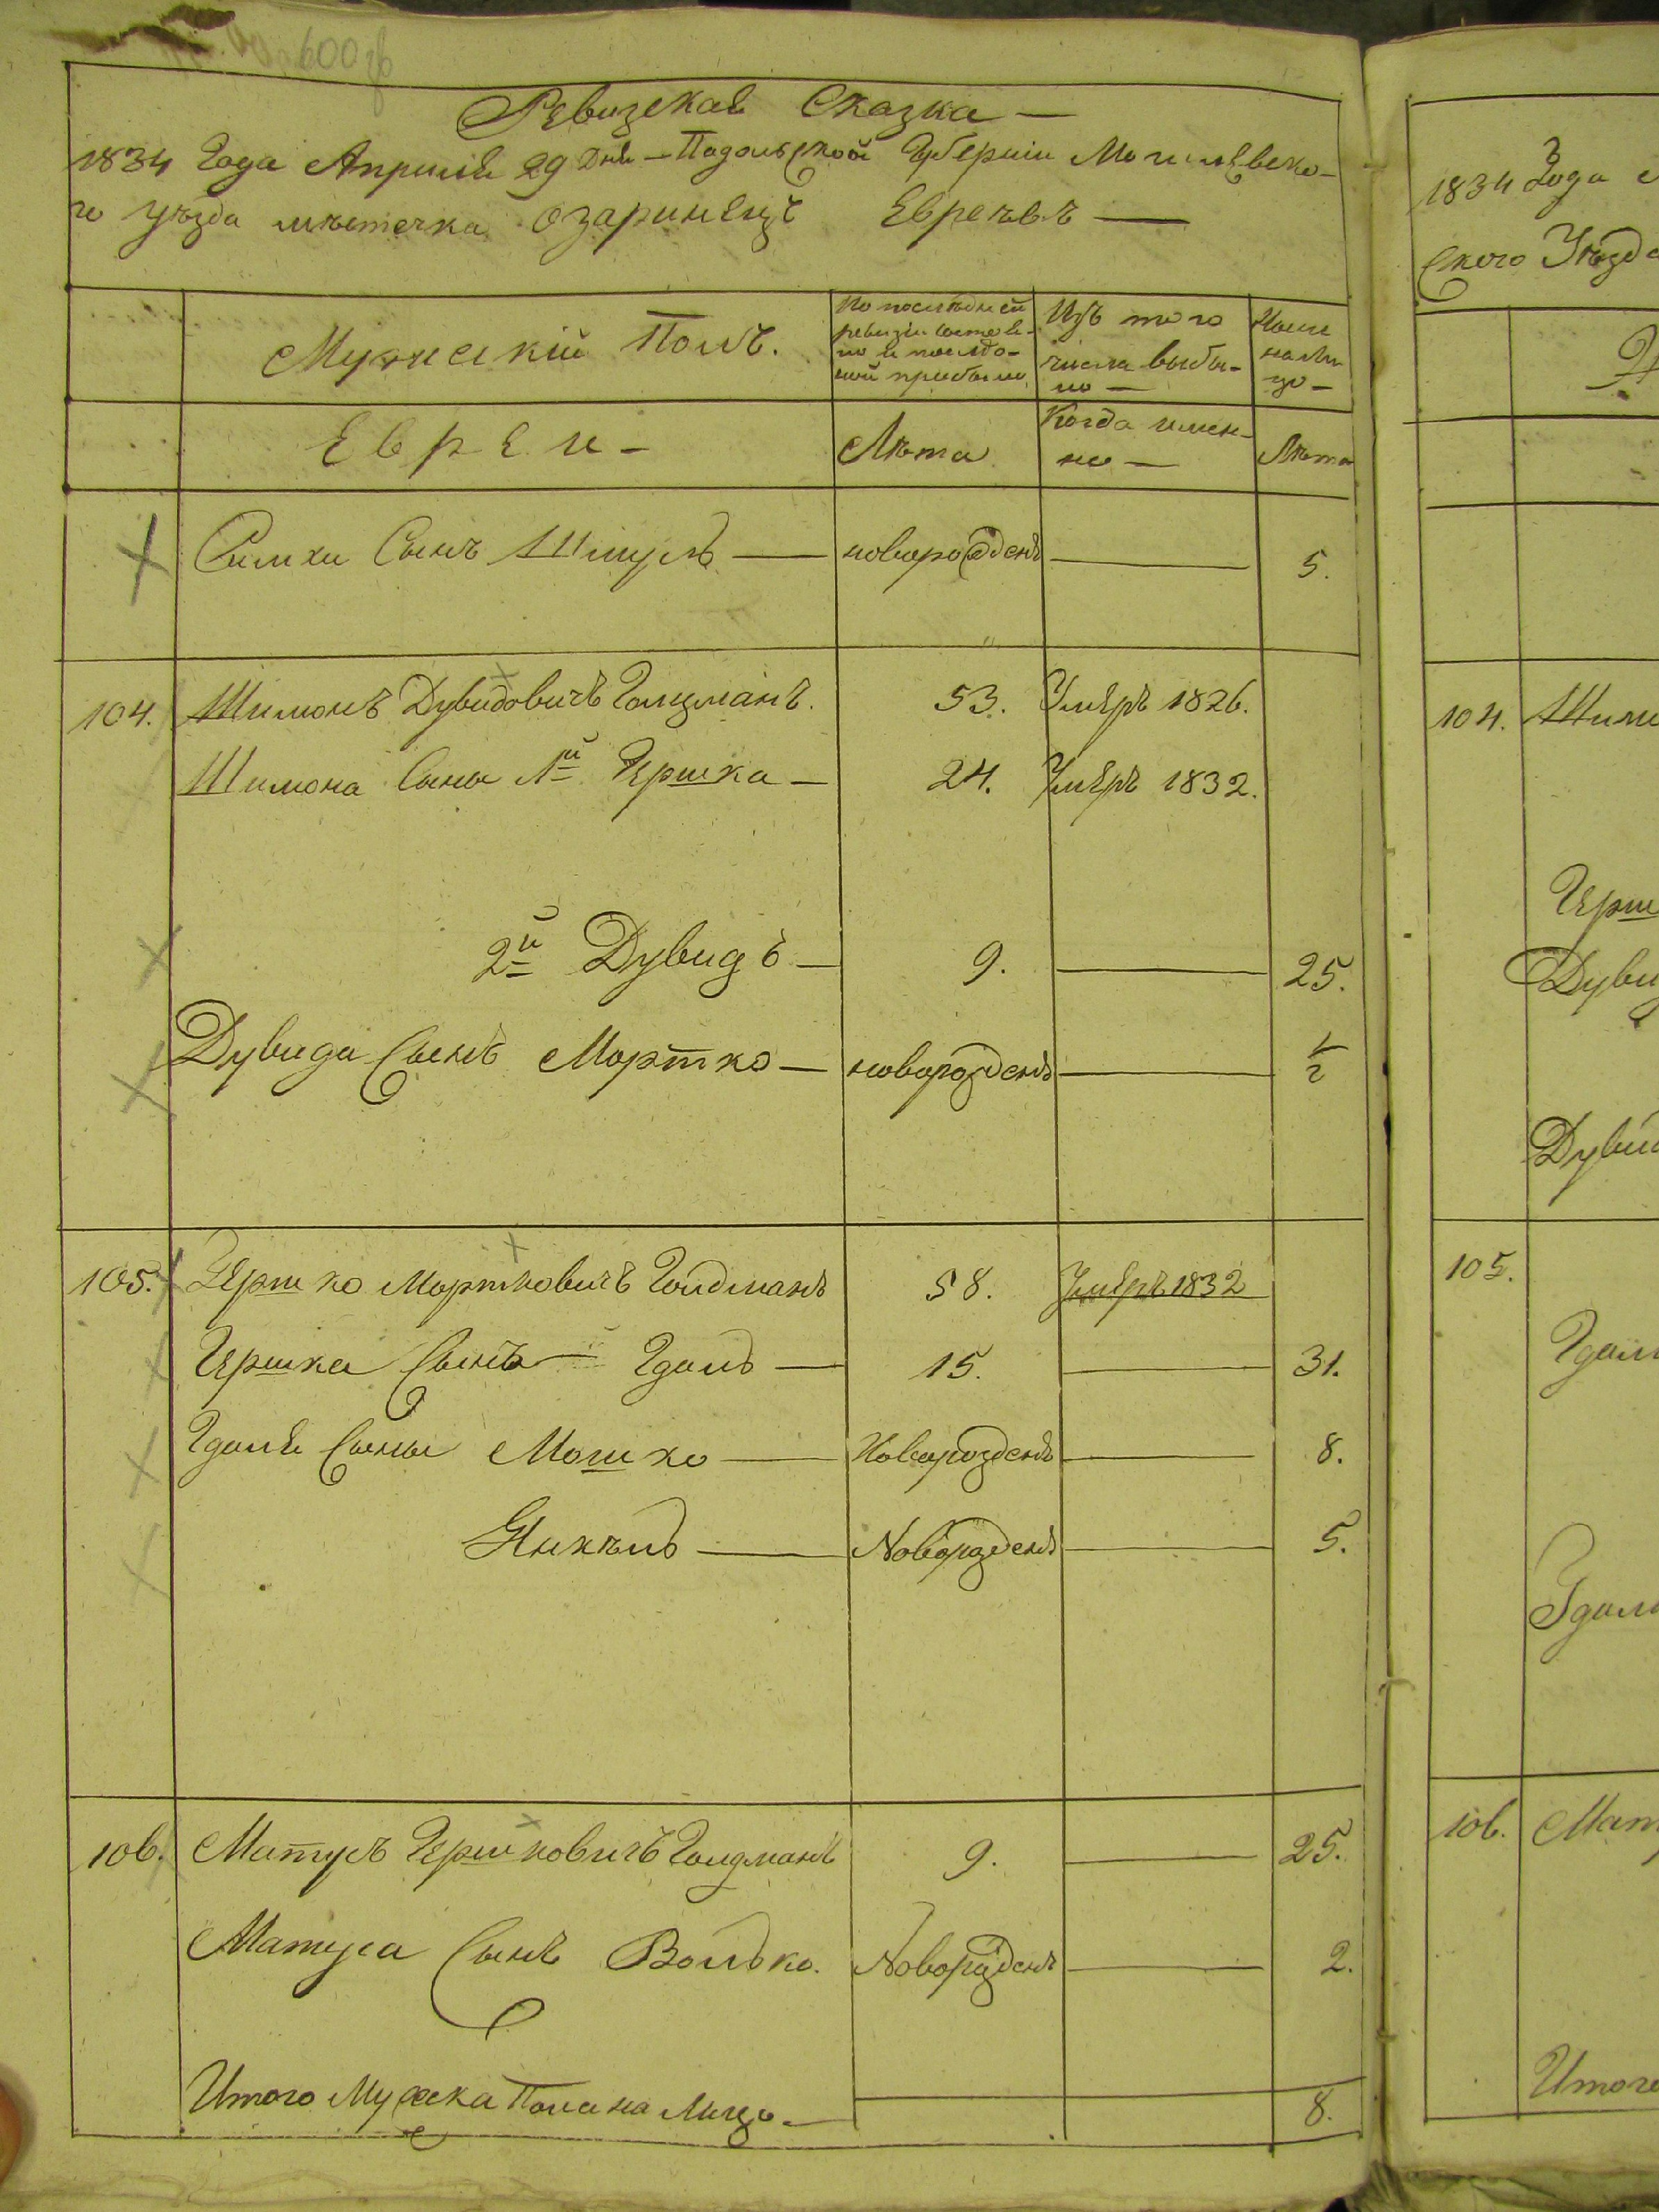 Ревизская Сказка —
1834 Года Апреля 29 Дня — Подольской Губернии Могилевско-
го уезда местечка Озаринецъ Евреевъ —
Мужескій Полъ.
По последней
ревизіи состоя-
ло и после о-
ной прибыло
Изъ того
числа выбы-
ло —
Ныне
на ли
цо —
Евреи —
Лѣта
Когда имен-
но —
Лѣта
Симхи Сынъ Шмуль — новорожденъ — 5.
104. Шимонъ Дувидовичъ Голцманъ. 53. Умеръ 1826.
Шимона Сыны 1й Гершка — 24. Умеръ 1832.
2й Дувидъ — 9. — 25.
Дувида Сынъ Мортко — новорозденъ — 1/2
105. Гершко Мортковичъ Голдманъ 58. Умеръ 1832
Гершка Сынъ — Гдаль — 15. — 31.
Гдаля Сыны Мошко — Новорозденъ — 8.
Янкель — Новорозденъ — 5.
106. Матусъ Гершковичъ Голдманъ 9. — 25.
Матуса Сынъ Волько. Новорозденъ — 2.
Итого Мужеска Пола на Лицо — 8.
1834 Года
ского Уезда
104. Шимо
Герш
Дувид
Дувид
105.
Гдаля
Гдаля
106. Мат
Итого